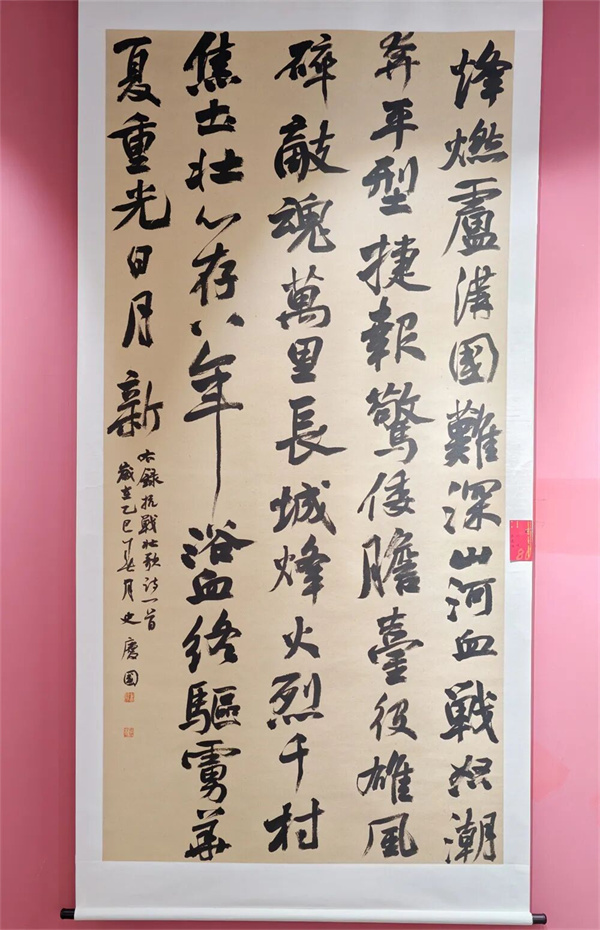 烽燃盧溝國難深山河血戰怒潮
奔平型捷報驚倭膽臺役雄風
碎敵魂萬里長城烽火烈千村
焦土壯心存八年浴血終驅虜華
夏重光日月新
右録抗戰壯歌詩一首
歲在乙巳丁月史慶國